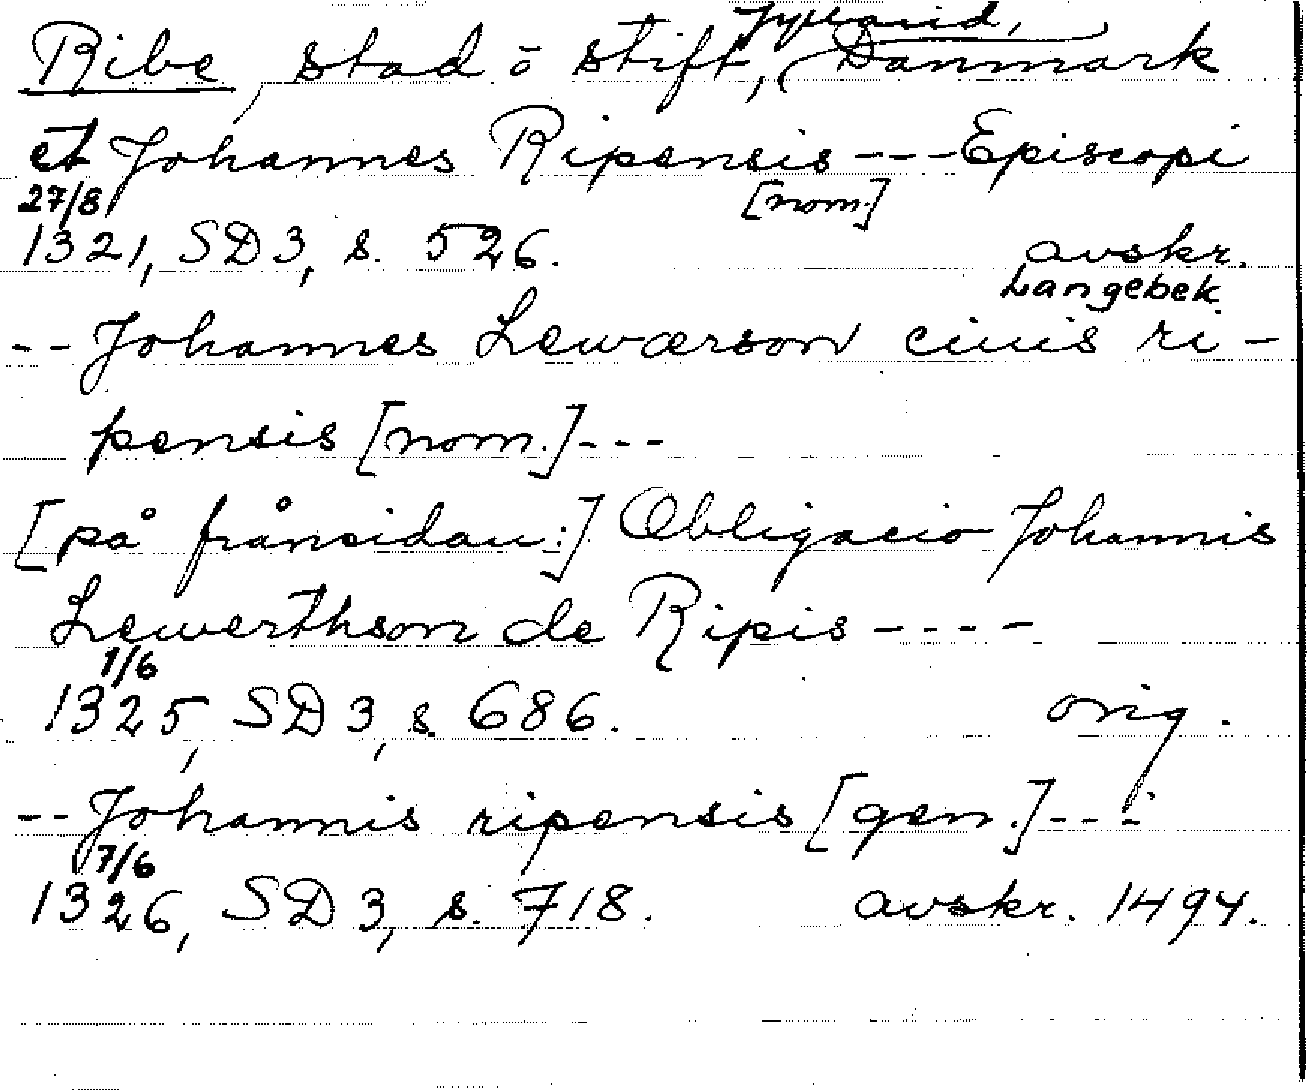 Ribe, stad o stift, Jylland, Danmark
et Johannes Ripensis --- Episcopi
[nom.]
27/8
1321, SD 3, s. 526. avskr.
Langebek
-- Johannes Lewærson ciuis ri-
pensis [nom.] ---
[på frånsidan:] Obligacio Johannis
Lewerthson de Ripis ----
1/6
1325, SD 3, s. 686. orig.
-- Johannis ripensis [gen.] ---
7/6
1326, SD 3, s. 718. avskr. 1494.